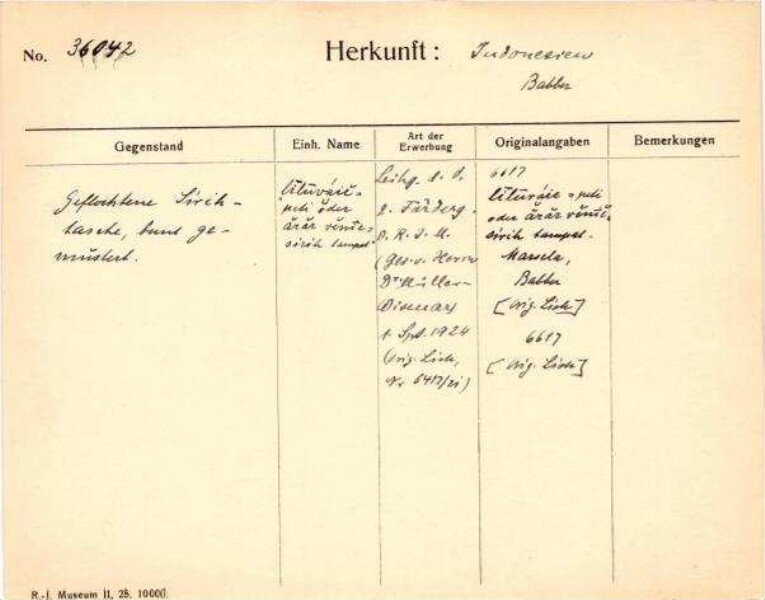 No. 36042
Herkunft: Indonesien
Babber
Gegenstand
Einh. Name
Art der Erwerbung
Originalangaben
Bemerkungen
Geflochtene Sirih-
tasche, bunt ge-
mustert.
lĭtŭváie-
peti oder
ărăr
sirih tampat
Leihg. d. G.
z. Förderg.
d. R. J. M.
(Ges. v. Herrn
Dr Müller-
Wismar)
1. Spt. 1924
(Orig. Liste,
6617
lĭtŭváie-peti
oder ărăr
sirih tampat-
Marsela,
Babber
[Orig. Liste]
6617
[Orig. Liste]
R.-J. Museum II, 28. 10000.